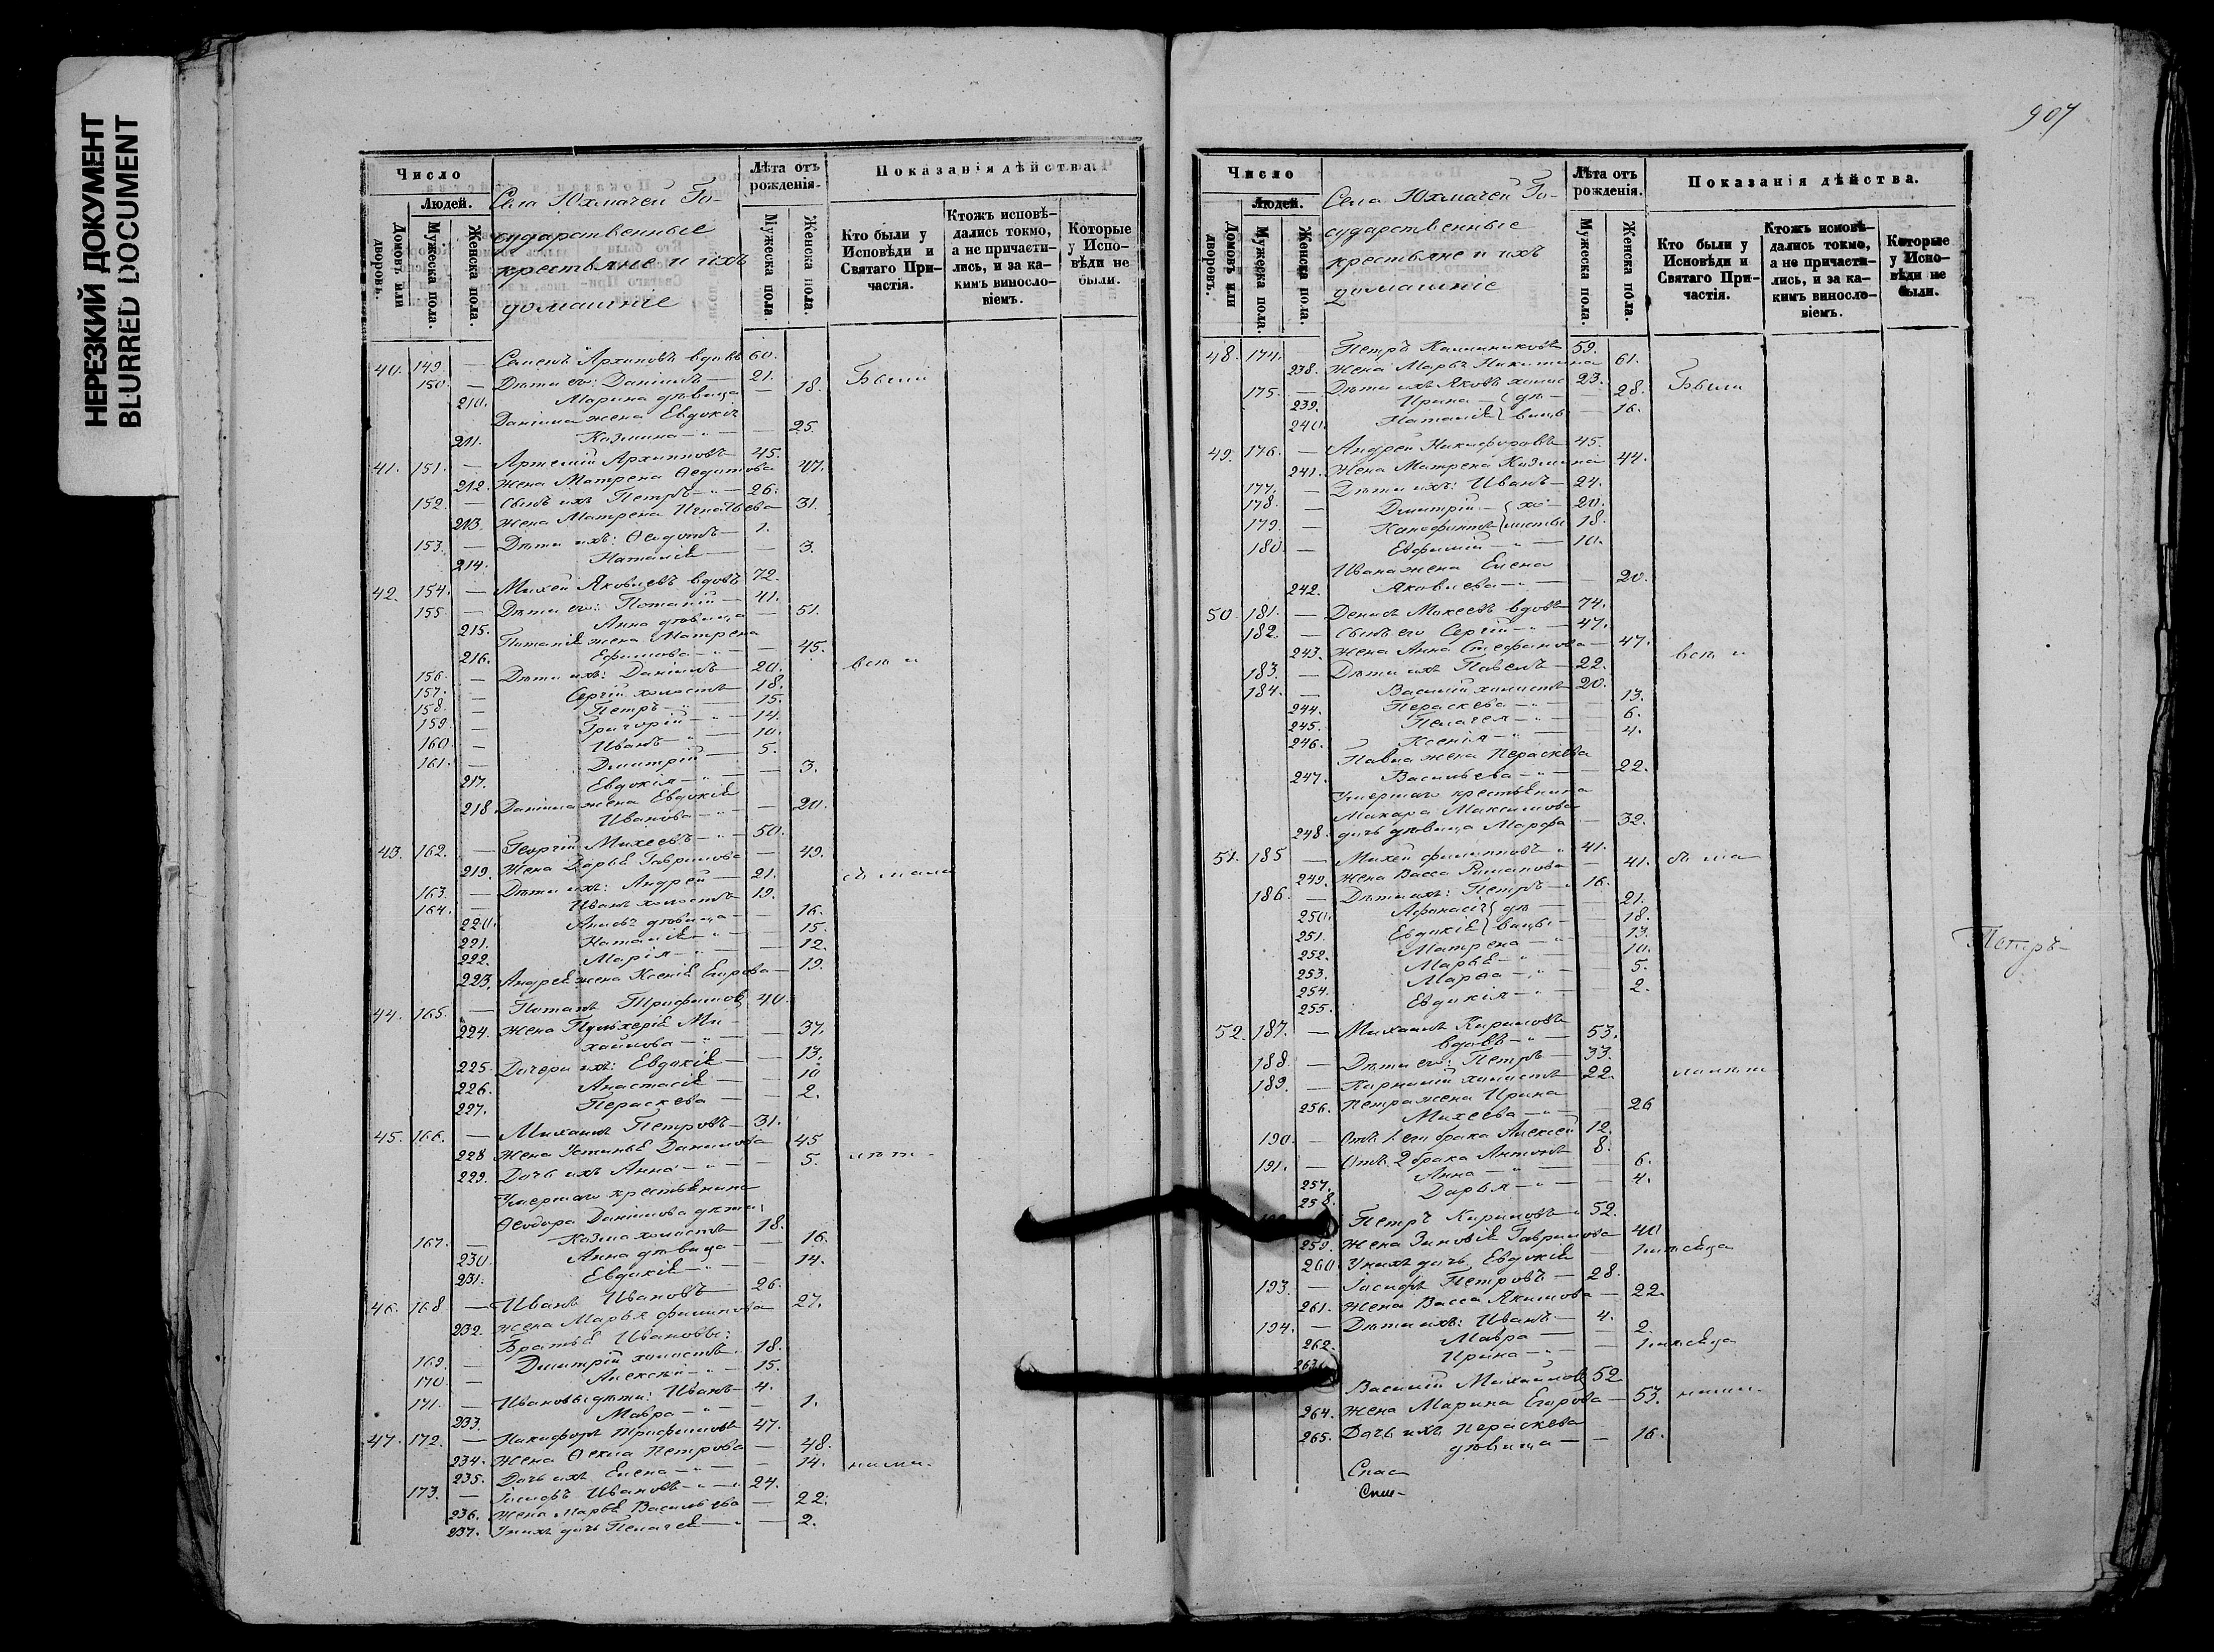 НЕРЕЗКИЙ ДОКУМЕНТ
BLURRED DOCUMENT
Число
Людей.
Домовъ или дворовъ.
Мужеска пола.
Женска пола.
Села Юхмачей Го-
сударственные
крестьяне и ихъ
домашніе
Лѣта отъ рожденія.
Мужеска пола.
Женска пола.
Показанія дѣйства.
Кто были у Исповѣди и Святаго При-частія.
Ктожъ исповѣ-дались токмо, а не причасти-лись, и за ка-кимъ виносло-віемъ.
Которые у Испо-вѣди не были.
40. 149. — Семенъ Архиповъ вдовъ 60.
150. — Дѣти его: Даніилъ — 21. Были
210. Марина дѣвица — 18.
Даніила жена Евдокія
211. Козмина — 25.
41. 151. — Артемій Архиповъ 45.
212. Жена Матрена Ѳедотова 47.
152. — Сынъ ихъ Петръ — 26.
213. Жена Матрена Игнатьева 31.
153. — Дѣти ихъ: Ѳедотъ 1.
214. Наталія — 3.
42. 154. — Михей Яковлевъ вдовъ 72.
155. — Дѣти его: Потапій — 41.
215. Анна дѣвица — 51.
Потапія жена Матрена
216. Ефимова — 45.
156. — Дѣти ихъ: Даніилъ — 20. всѣ и
157. — Сергій холостъ 18.
158. — Петръ — 15.
159. — Григорій — 14.
160. — Иванъ — 10.
161. — Дмитрій — 5.
217. Евдокія — 3.
218 Даніила жена Евдокія
Иванова — 20.
43. 162. — Георгій Михеевъ — 50.
219. Жена Дарья Гаврилова — 49.
163. — Дѣти ихъ: Андрей — 21. съ мало
164. — Иванъ холостъ 19.
220. дѣвица — 16.
221. Наталія — 15.
222. Марія — 12.
223. Андрея жена Ксенія Егорова — 19.
44. 165. — Потапъ Трифоновъ 40.
224. Жена Пульхерія Ми-
хайлова — 37.
225. Дочери ихъ: Евдокія — 13.
226. Анастасія — 10
227. Пераскева — 2.
45. 166. — Михаилъ Петровъ — 31.
228 Жена Устинья Данилова 45
229. Дочь ихъ Анна — 5. лѣт-
Умершаго крестьянина
Ѳеодора Даніилова дѣти:
167. — Козма холостъ 18.
230. Анна дѣвица — 16.
231. Евдокія — 14.
46. 168. — Иванъ Ивановъ — 26.
232. Жена Марья Филипова 27.
Братья Ивановы:
169. — Дмитрій холостъ 18.
170. — Алексѣй — 15.
171. — Ивановы дѣти: Иванъ 4.
233. Мавра — 1.
47. 172. — Никифоръ Трифоновъ 47.
234. Жена Ѳекла Петрова — 48.
235. Дочь ихъ Елена — 14. ними.
173. — Іосифъ Ивановъ — 24.
236. Жена Марья Васильева — 22.
237. У нихъ дочь Пелагея — 2.
907
Число
Людей.
Домовъ или дворовъ.
Мужеска пола.
Женска пола.
Села Юхмачей Го-
сударственные
крестьяне и ихъ
домашніе
Лѣта отъ рожденія.
Мужеска пола.
Женска пола.
Показанія дѣйства.
Кто были у Исповѣди и Святаго При-частія.
Ктожъ исповѣ-дались токмо, а не причасти-лись, и за ка-кимъ виносло-віемъ.
Которые у Испо-вѣди не были.
48. 174. — Петръ Калинниковъ 59.
238. Жена Марья Никитина 61.
175. — Дѣти ихъ Яковъ холос 23. Были
239. Ирина — дѣ- 28.
240. Наталія вицы 16.
49. 176. — Андрей Никифоровъ 45.
241. Жена Матрена Козмина 44.
177. — Дѣти ихъ: Иванъ — 24.
178. — Дмитрій — хо- 20.
179. — Ксенофонтъ лосты 18.
180. — Евфимій — 10.
Ивана жена Елена
242. Яковлева — 20.
50. 181. — Денисъ Мокеевъ вдовъ 74.
182. — Сынъ его Сергій — 47.
243. Жена Анна Стефанова — 47. всѣ и
183. — Дѣти ихъ Павелъ — 22.
184. — Василій холостъ 20.
244. Пераскева — 13.
245. Пелагея — 6.
246. Ксенія — 4.
Павла жена Пераскева
247. Васильева — 22.
Умершаго крестьянина
Макара Максимова
248. дочь дѣвица Марфа — 32.
51. 185 — Михей Филипповъ 41.
249. Жена Васса Романова — 41. съ ма
186. — Дѣти ихъ: Петръ 16.
250. Афанасія дѣ- 21.
251. Евдокія вицы 18.
252. Матрена — 13.
253. Марья — 10.
254. Марѳа — 5.
255. Евдокія — 2.
Петръ
52. 187. — Михаилъ Кириловъ
вдовъ — 53.
188. — Дѣти его: Петръ — 33.
189. — холостъ 22. лолѣт
256. Петра жена Ирина
Михеева — 26
190. — Отъ 1-го брака Алексѣй 12.
191. — Отъ 2 брака Антонъ 8.
257. Анна — 6.
258. Дарья — 4.
Петръ Кириловъ 52.
259. Жена Зиновія Гаврилова 40
260. У нихъ дочь Евдокія — 1 мѣсяца
193. — Іосифъ Петровъ — 28.
261. Жена Васса Якимова — 22.
194. — Дѣти ихъ: Иванъ — 4.
262. Мавра — 2.
263. Ирина — 1 мѣсяца
Василій Михайловъ 52
264. Жена Марина Егорова — 53. ними.
265. Дочь ихъ Пераскева
дѣвица — 16.
Спас